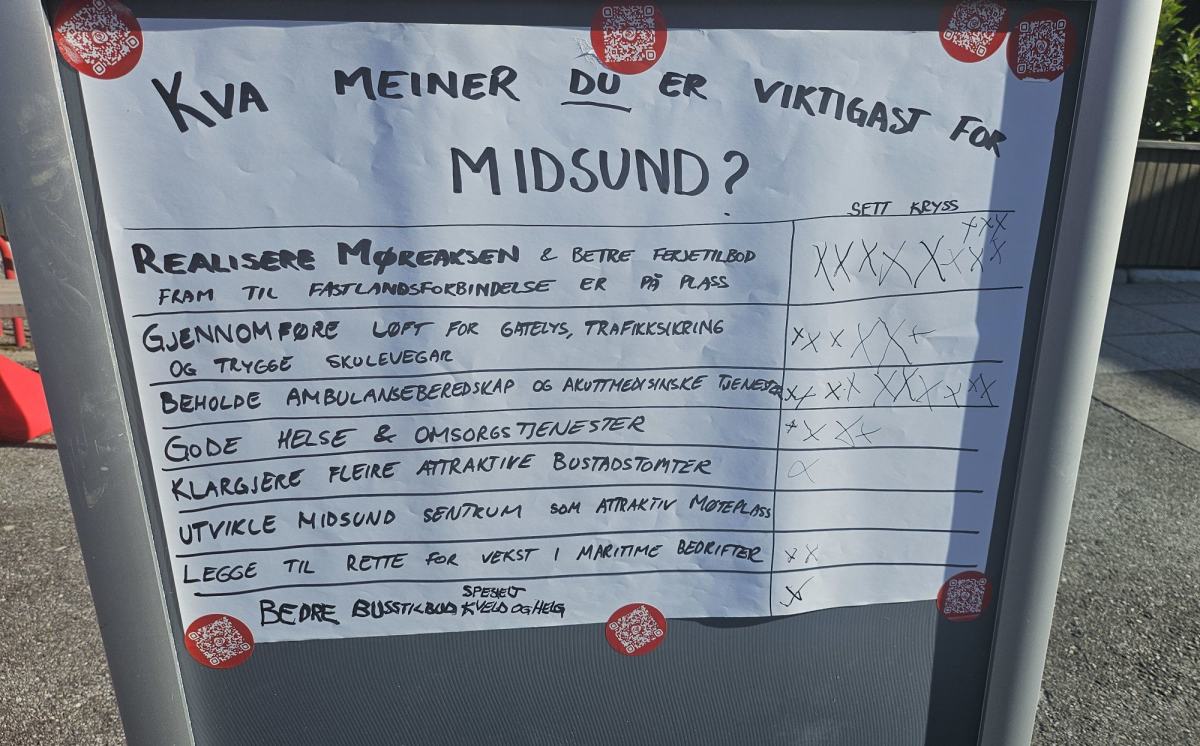 KVA MEINER DU ER VIKTIGAST FOR
MIDSUND?
SETT KRYSS
REALISERE MØREAKSEN & BETRE FERJETILBOD
FRAM TIL FASTLANDSFORBINDELSE ER PÅ PLASS
GJENNOMFØRE LØFT FOR GATELYS, TRAFIKKSIKRING
OG TRYGGE SKULEVEGAR
BEHOLDE AMBULANSEBEREDSKAP OG AKUTTMEDISINSKE TJENESTER
GODE HELSE & OMSORGSTJENESTER
KLARGJERE FLEIRE ATTRAKTIVE BUSTADSTOMTER
UTVIKLE MIDSUND SENTRUM SOM ATTRAKTIV MØTEPLASS
LEGGE TIL RETTE FOR VEKST I MARITIME BEDRIFTER
SPESIELT
BEDRE BUSSTILBUD KVELD OG HELG